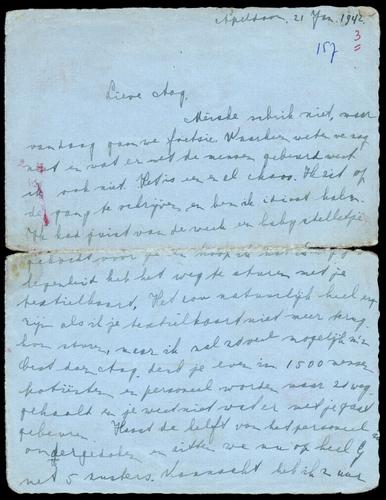 Apeldoorn, 21 Jan. 1942.
157 3
Lieve Aag,
Meiske schrik niet, maar
vandaag gaan we foetsie. Waarheen weten we nog
niet en wat er met de mensen gebeurd weet
ik ook niet. Het is een en al chaos. Ik zit op
de gang te schrijven en ben idioot kalm.
Ik had juist van de week een babystelletje
gekocht voor je en hoop
het weg te sturen met je
textielkaart. Het zou natuurlijk heel erg
zijn als ik je textielkaart niet meer terug
kon sturen, maar ik zal zoveel mogelijk m'n
best doen Aag, denk je even in 1500 mensen
patiënten en personeel worden naar zo weg-
gehaald en je weet niet wat er met je gaat
gebeuren. Haast de helft van het personeel
ondergedoken en zitten we nu op heel
met 5 zusters. Vannacht heb ik 2 uur